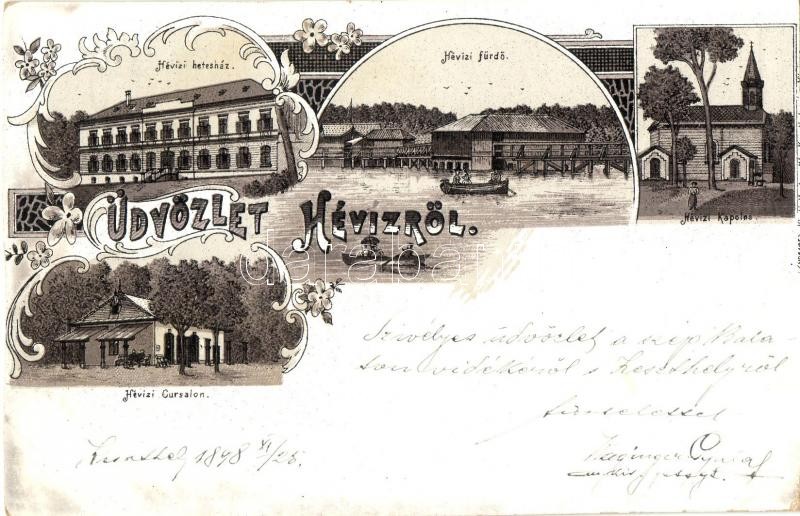 Hévizi hetesház.
Hévizi fürdő.
Hévizi Kapolna.
ÜDVÖZLET HÉVIZRÖL.
Hévizi Cursalon.
Szivélyes üdvözlet a szép Bala-
ton vidékéről s Keszthelyről
tisztelettel
Keszthely 1898 VI/28.
darabanth